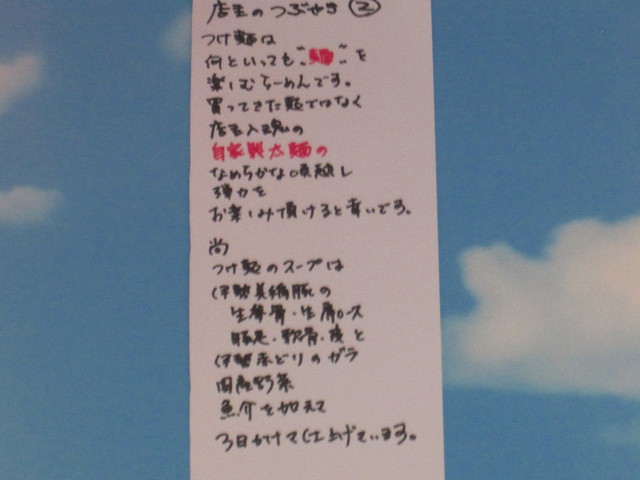 店主のつぶやき②
つけ麺は
何といっても"麺"を
楽しむらーめんです。
買ってきた麺ではなく
店主入魂の
自家製太麺の
なめらかな喉越し
弾力を
お楽しみ頂けると幸いです。
尚
つけ麺のスープは
伊勢美稲豚の
生背骨・生肩ロース
豚足・軟骨・後と
伊勢赤どりのガラ
国産野菜
魚介を加えて
3日かけて仕上げています。